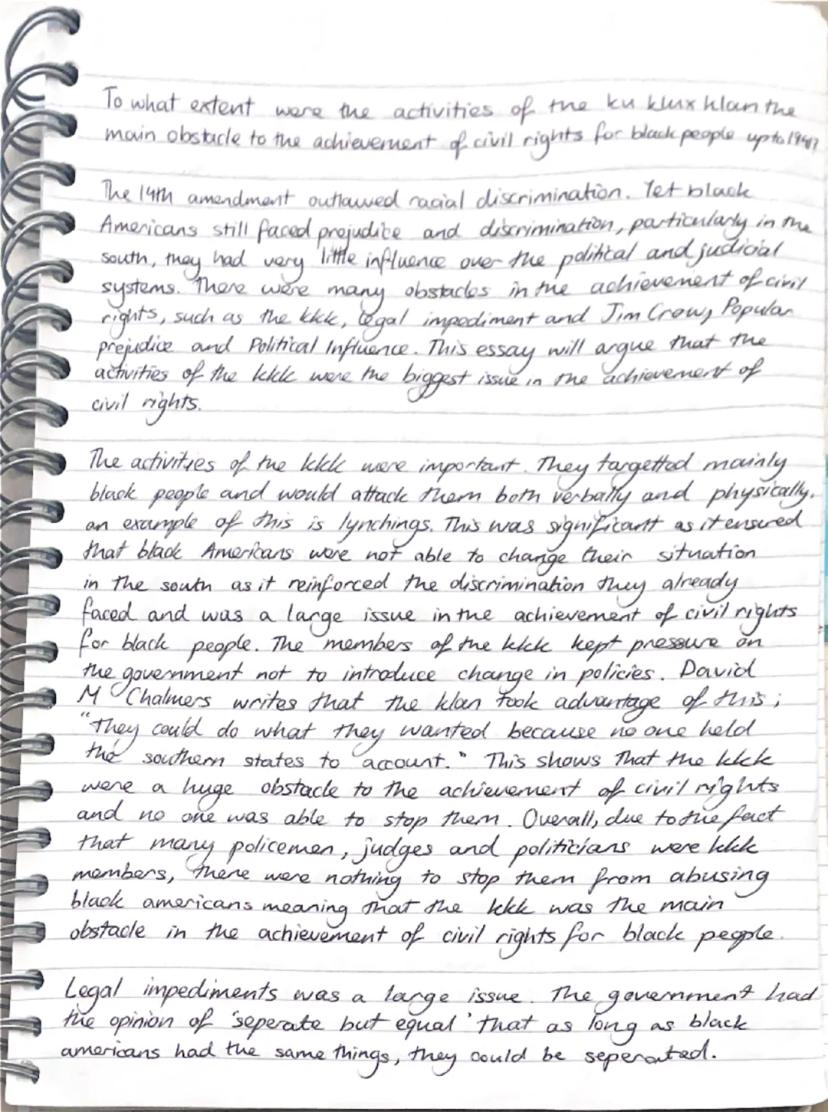 To what extent were the activities of the ku klux klan the
main obstacle to the achievement of civil rights for black people up to 1941?
The 14th amendment outlawed racial discrimination. Yet black
Americans still faced prejudice and discrimination, particularly in the
south, they had very little influence over the political and judicial
systems. There were many obstacles in the achievement of civil
rights, such as the kkk, legal impediment and Jim Crow, Popular
prejudice and Political Influence. This essay will argue that the
activities of the kkk were the biggest issue in the achievement of
civil rights.
The activities of the kkk were important. They targetted mainly
black people and would attack them both verbally and physically.
an example of this is lynchings. This was significant as it ensured
that black Americans were not able to change their situation
in the south as it reinforced the discrimination they already
faced and was a large issue in the achievement of civil rights
for black people. The members of the kkk kept pressure on
the government not to introduce change in policies. David
M Chalmers writes that the klan took advantage of this;
"They could do what they wanted because no one held
the southern states to account." This shows that the kkk
were a huge obstacle to the achievement of civil rights
and no one was able to stop them. Overall, due to the fact
that many policemen, judges and politicians were kkk
members, there were nothing to stop them from abusing
black americans meaning that the kkk was the main
obstacle in the achievement of civil rights for black people.
Legal impediments was a large issue. The government had
the opinion of 'seperate but equal' that as long as black
americans had the same things, they could be seperated.